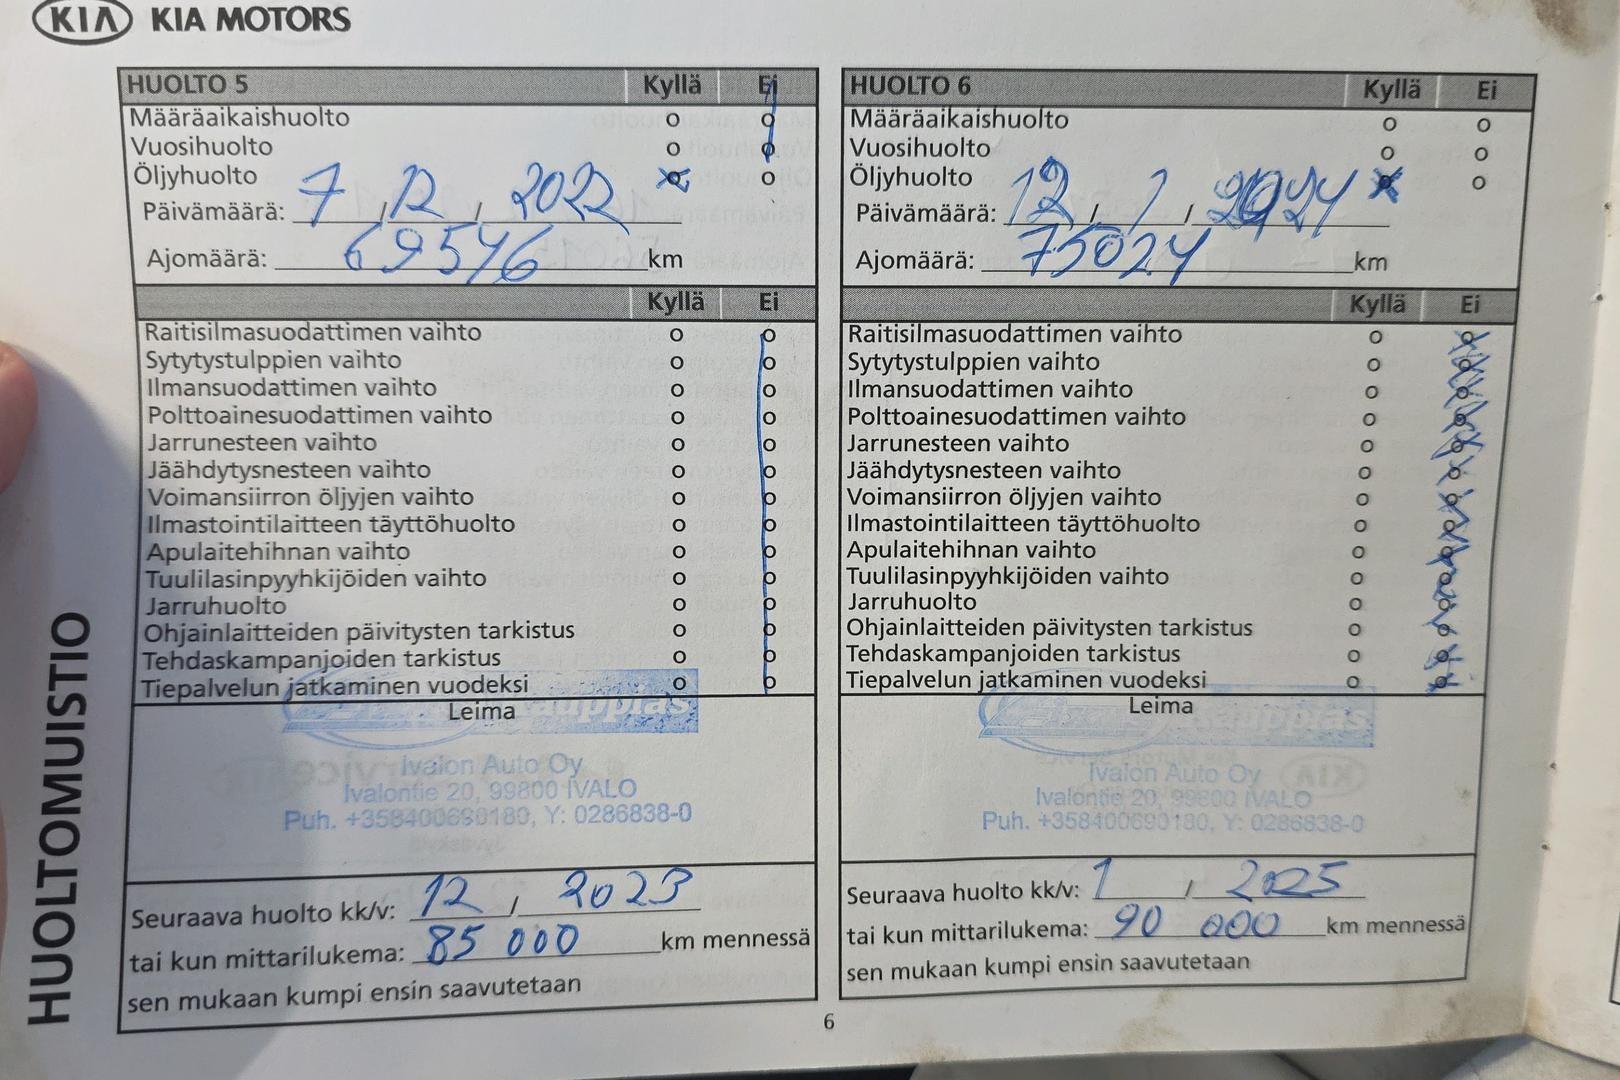 KIA KIA MOTORS
HUOLTO 5 Kyllä Ei
Määräaikaishuolto o o
Vuosihuolto o o
Öljyhuolto o o
Päivämäärä: 7 / 12 / 2022
Ajomäärä: 69546 km
Kyllä Ei
Raitisilmasuodattimen vaihto o o
Sytytystulppien vaihto o o
Ilmansuodattimen vaihto o o
Polttoainesuodattimen vaihto o o
Jarrunesteen vaihto o o
Jäähdytysnesteen vaihto o o
Voimansiirron öljyjen vaihto o o
Ilmastointilaitteen täyttöhuolto o o
Apulaitehihnan vaihto o o
Tuulilasinpyyhkijöiden vaihto o o
Jarruhuolto o o
Ohjainlaitteiden päivitysten tarkistus o o
Tehdaskampanjoiden tarkistus o o
Tiepalvelun jatkaminen vuodeksi o o
Leima
Ivalon Auto Oy
Ivalontie 20, 99800 IVALO
Puh. +358400690180, Y: 0286838-0
Seuraava huolto kk/v: 12 / 2023
tai kun mittarilukema: 85 000 km mennessä
sen mukaan kumpi ensin saavutetaan
HUOLTO 6 Kyllä Ei
Määräaikaishuolto o o
Vuosihuolto o o
Öljyhuolto o o
Päivämäärä: 12 / 1 / 2024
Ajomäärä: 75024 km
Kyllä Ei
Raitisilmasuodattimen vaihto o o
Sytytystulppien vaihto o o
Ilmansuodattimen vaihto o o
Polttoainesuodattimen vaihto o o
Jarrunesteen vaihto o o
Jäähdytysnesteen vaihto o o
Voimansiirron öljyjen vaihto o o
Ilmastointilaitteen täyttöhuolto o o
Apulaitehihnan vaihto o o
Tuulilasinpyyhkijöiden vaihto o o
Jarruhuolto o o
Ohjainlaitteiden päivitysten tarkistus o o
Tehdaskampanjoiden tarkistus o o
Tiepalvelun jatkaminen vuodeksi o o
Leima
Ivalon Auto Oy
Ivalontie 20, 99800 IVALO
Puh. +358400690180, Y: 0286838-0
Seuraava huolto kk/v: 1 / 2025
tai kun mittarilukema: 90 000 km mennessä
sen mukaan kumpi ensin saavutetaan
HUOLTOMUISTIO
6